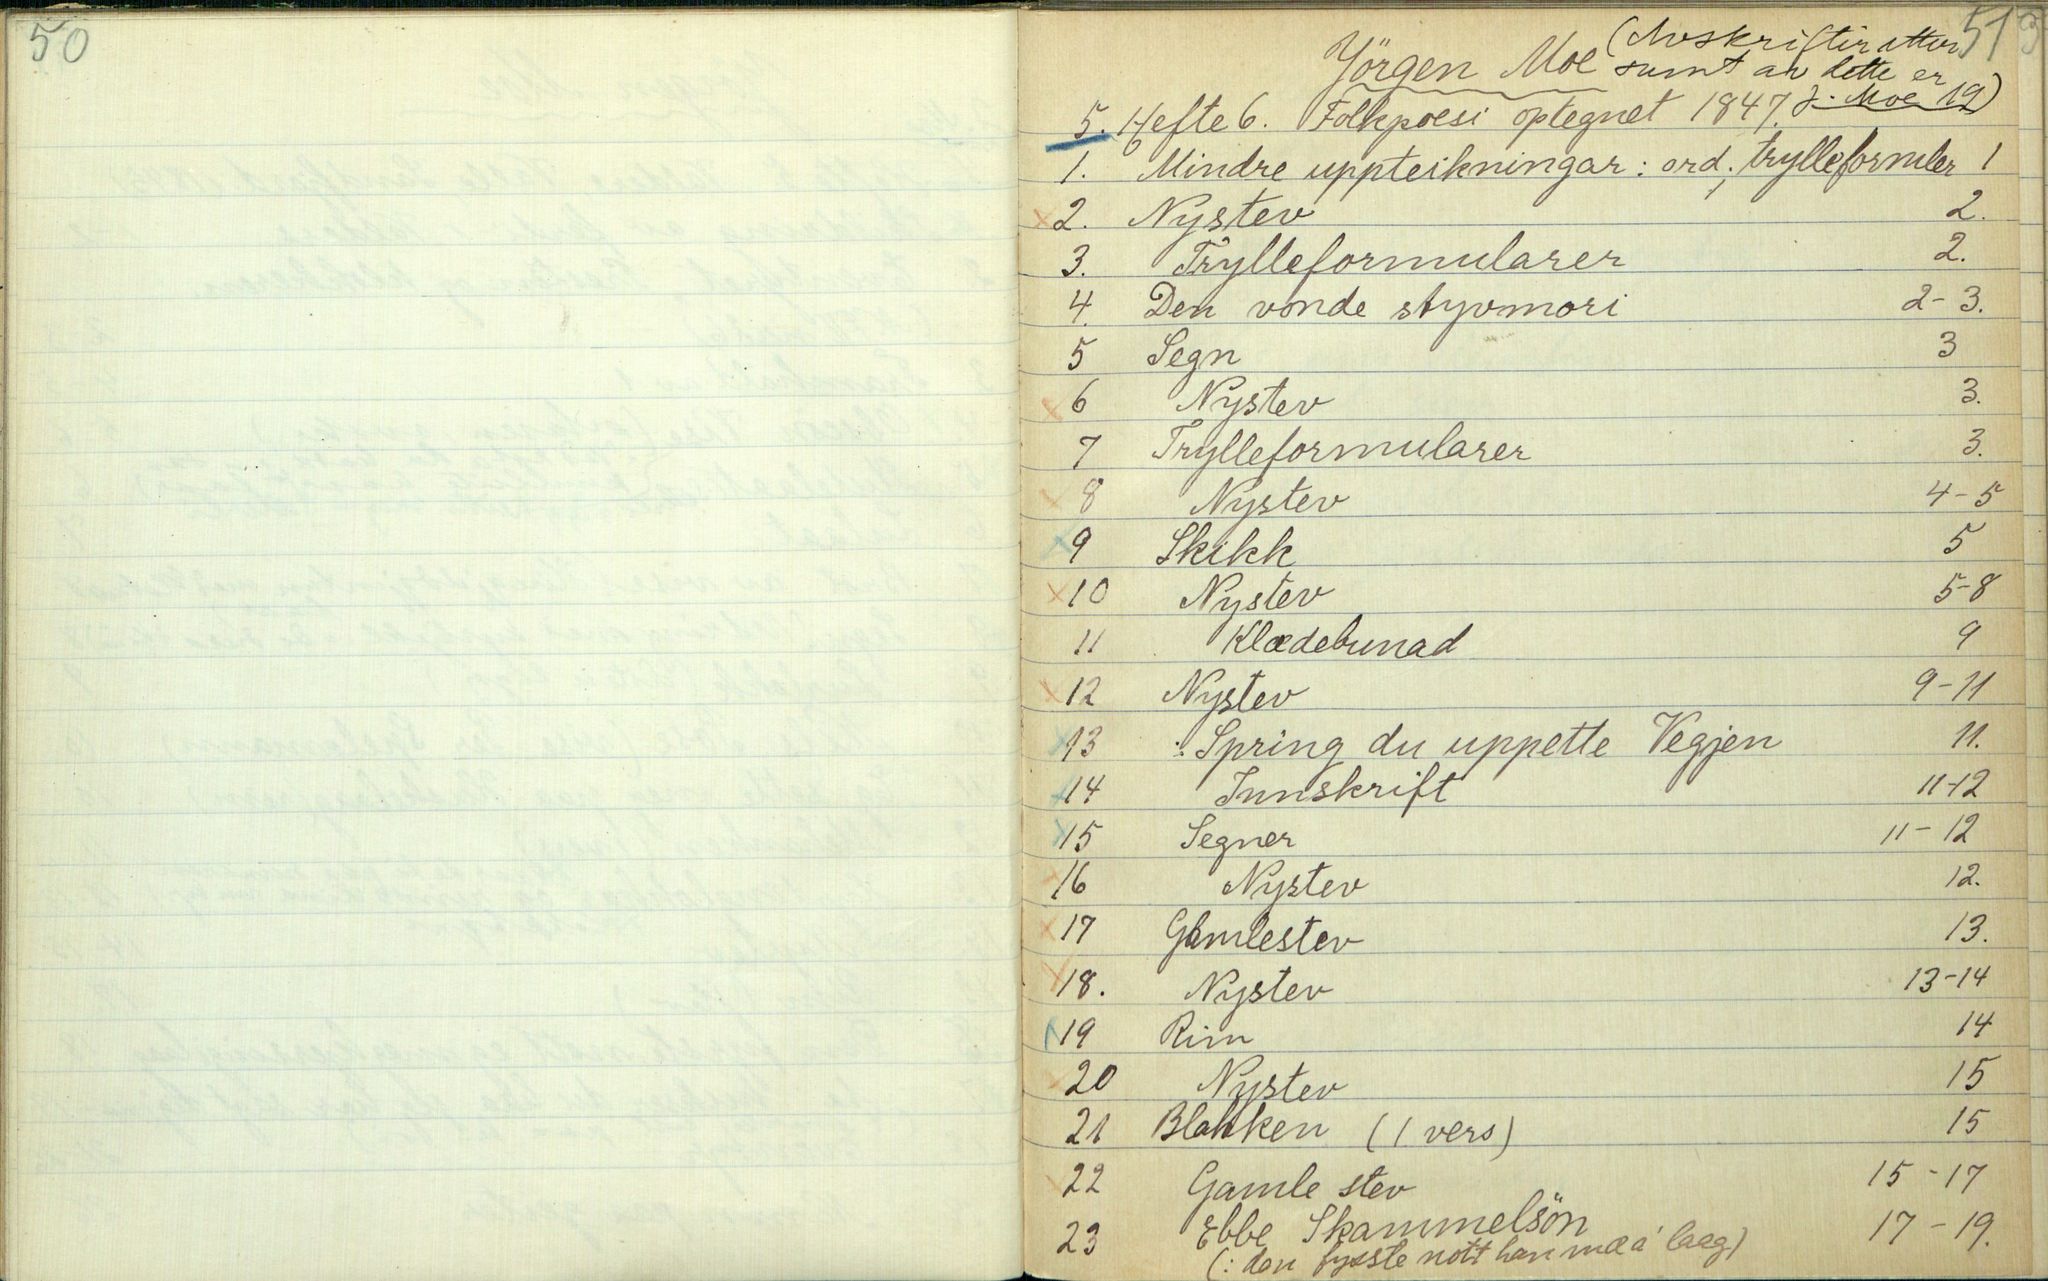 50
51
Jörgen Moe (Avskriftir etter
sumt av dette er
J. Moe 19)
5. Hefte 6. Folkpoesi optegnet 1847.
1. Mindre uppteikningar: ord; trylleformler 1
2. Nystev 2.
3. Trylleformularer 2.
4. Den vonde styvmori 2-3.
5 Segn 3
6 Nystev 3.
7 Trylleformularer 3.
8 Nystev 4-5
9 Skikk 5
10 Nystev 5-8
11 Klædebunad 9
12 Nystev 9-11
13 : Spring du uppette Vegjen 11.
14 Innskrift 11-12
15 Segner 11-12
16 Nystev 12.
17 Gamlestev 13.
18. Nystev 13-14
19 Rim 14
20 Nystev 15
21 Blakken (1 vers) 15
22 Gamle stev 15-17
23 Ebbe Skammelsön 17-19.
(: den fysste nott han mæ å laag)